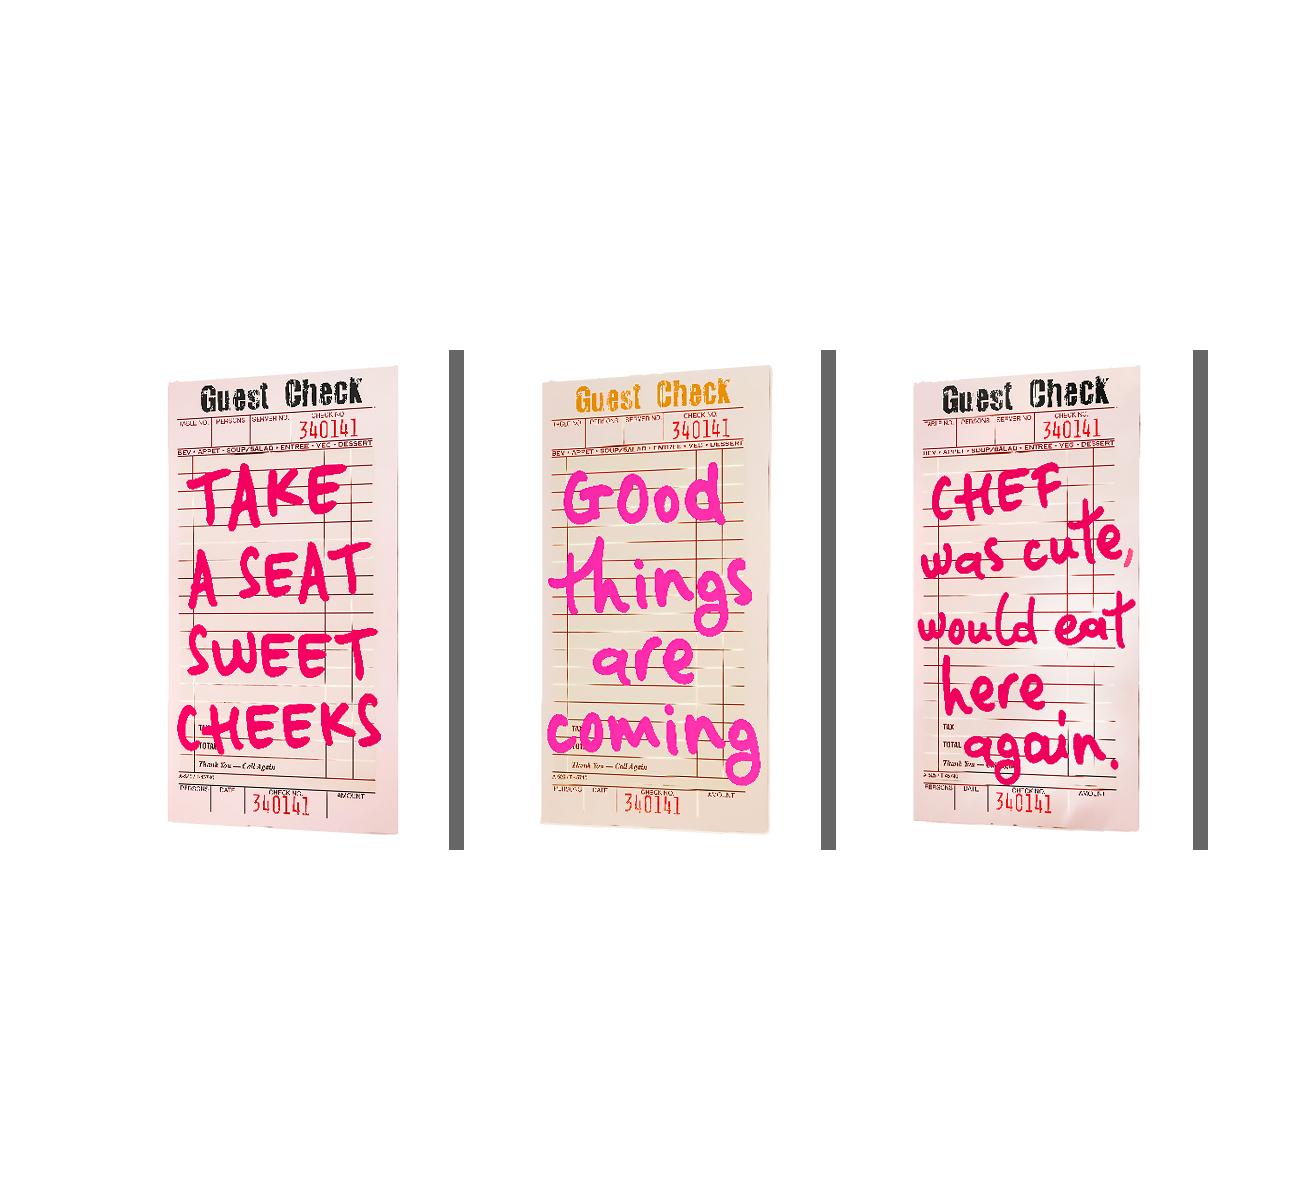 Guest Check
TABLE NO. PERSONS SERVER NO. CHECK NO.
340141
BEV • APPET • SOUP/SALAD • ENTREE • VEG • DESSERT
TAKE
A SEAT
SWEET
CHEEKS
TAX
TOTAL
Thank You — Call Again
PERSONS DATE CHECK NO. AMOUNT
340141
Guest Check
TABLE NO. PERSONS SERVER NO. CHECK NO.
340141
BEV • APPET • SOUP/SALAD • ENTREE • VEG • DESSERT
Good
things
are
coming
Thank You — Call Again
PERSONS DATE CHECK NO. AMOUNT
340141
Guest Check
TABLE NO. PERSONS SERVER NO. CHECK NO.
340141
BEV • APPET • SOUP/SALAD • ENTREE • VEG • DESSERT
CHEF
was cute,
would eat
here
again.
TAX
TOTAL
Thank You —
PERSONS DATE CHECK NO. AMOUNT
340141